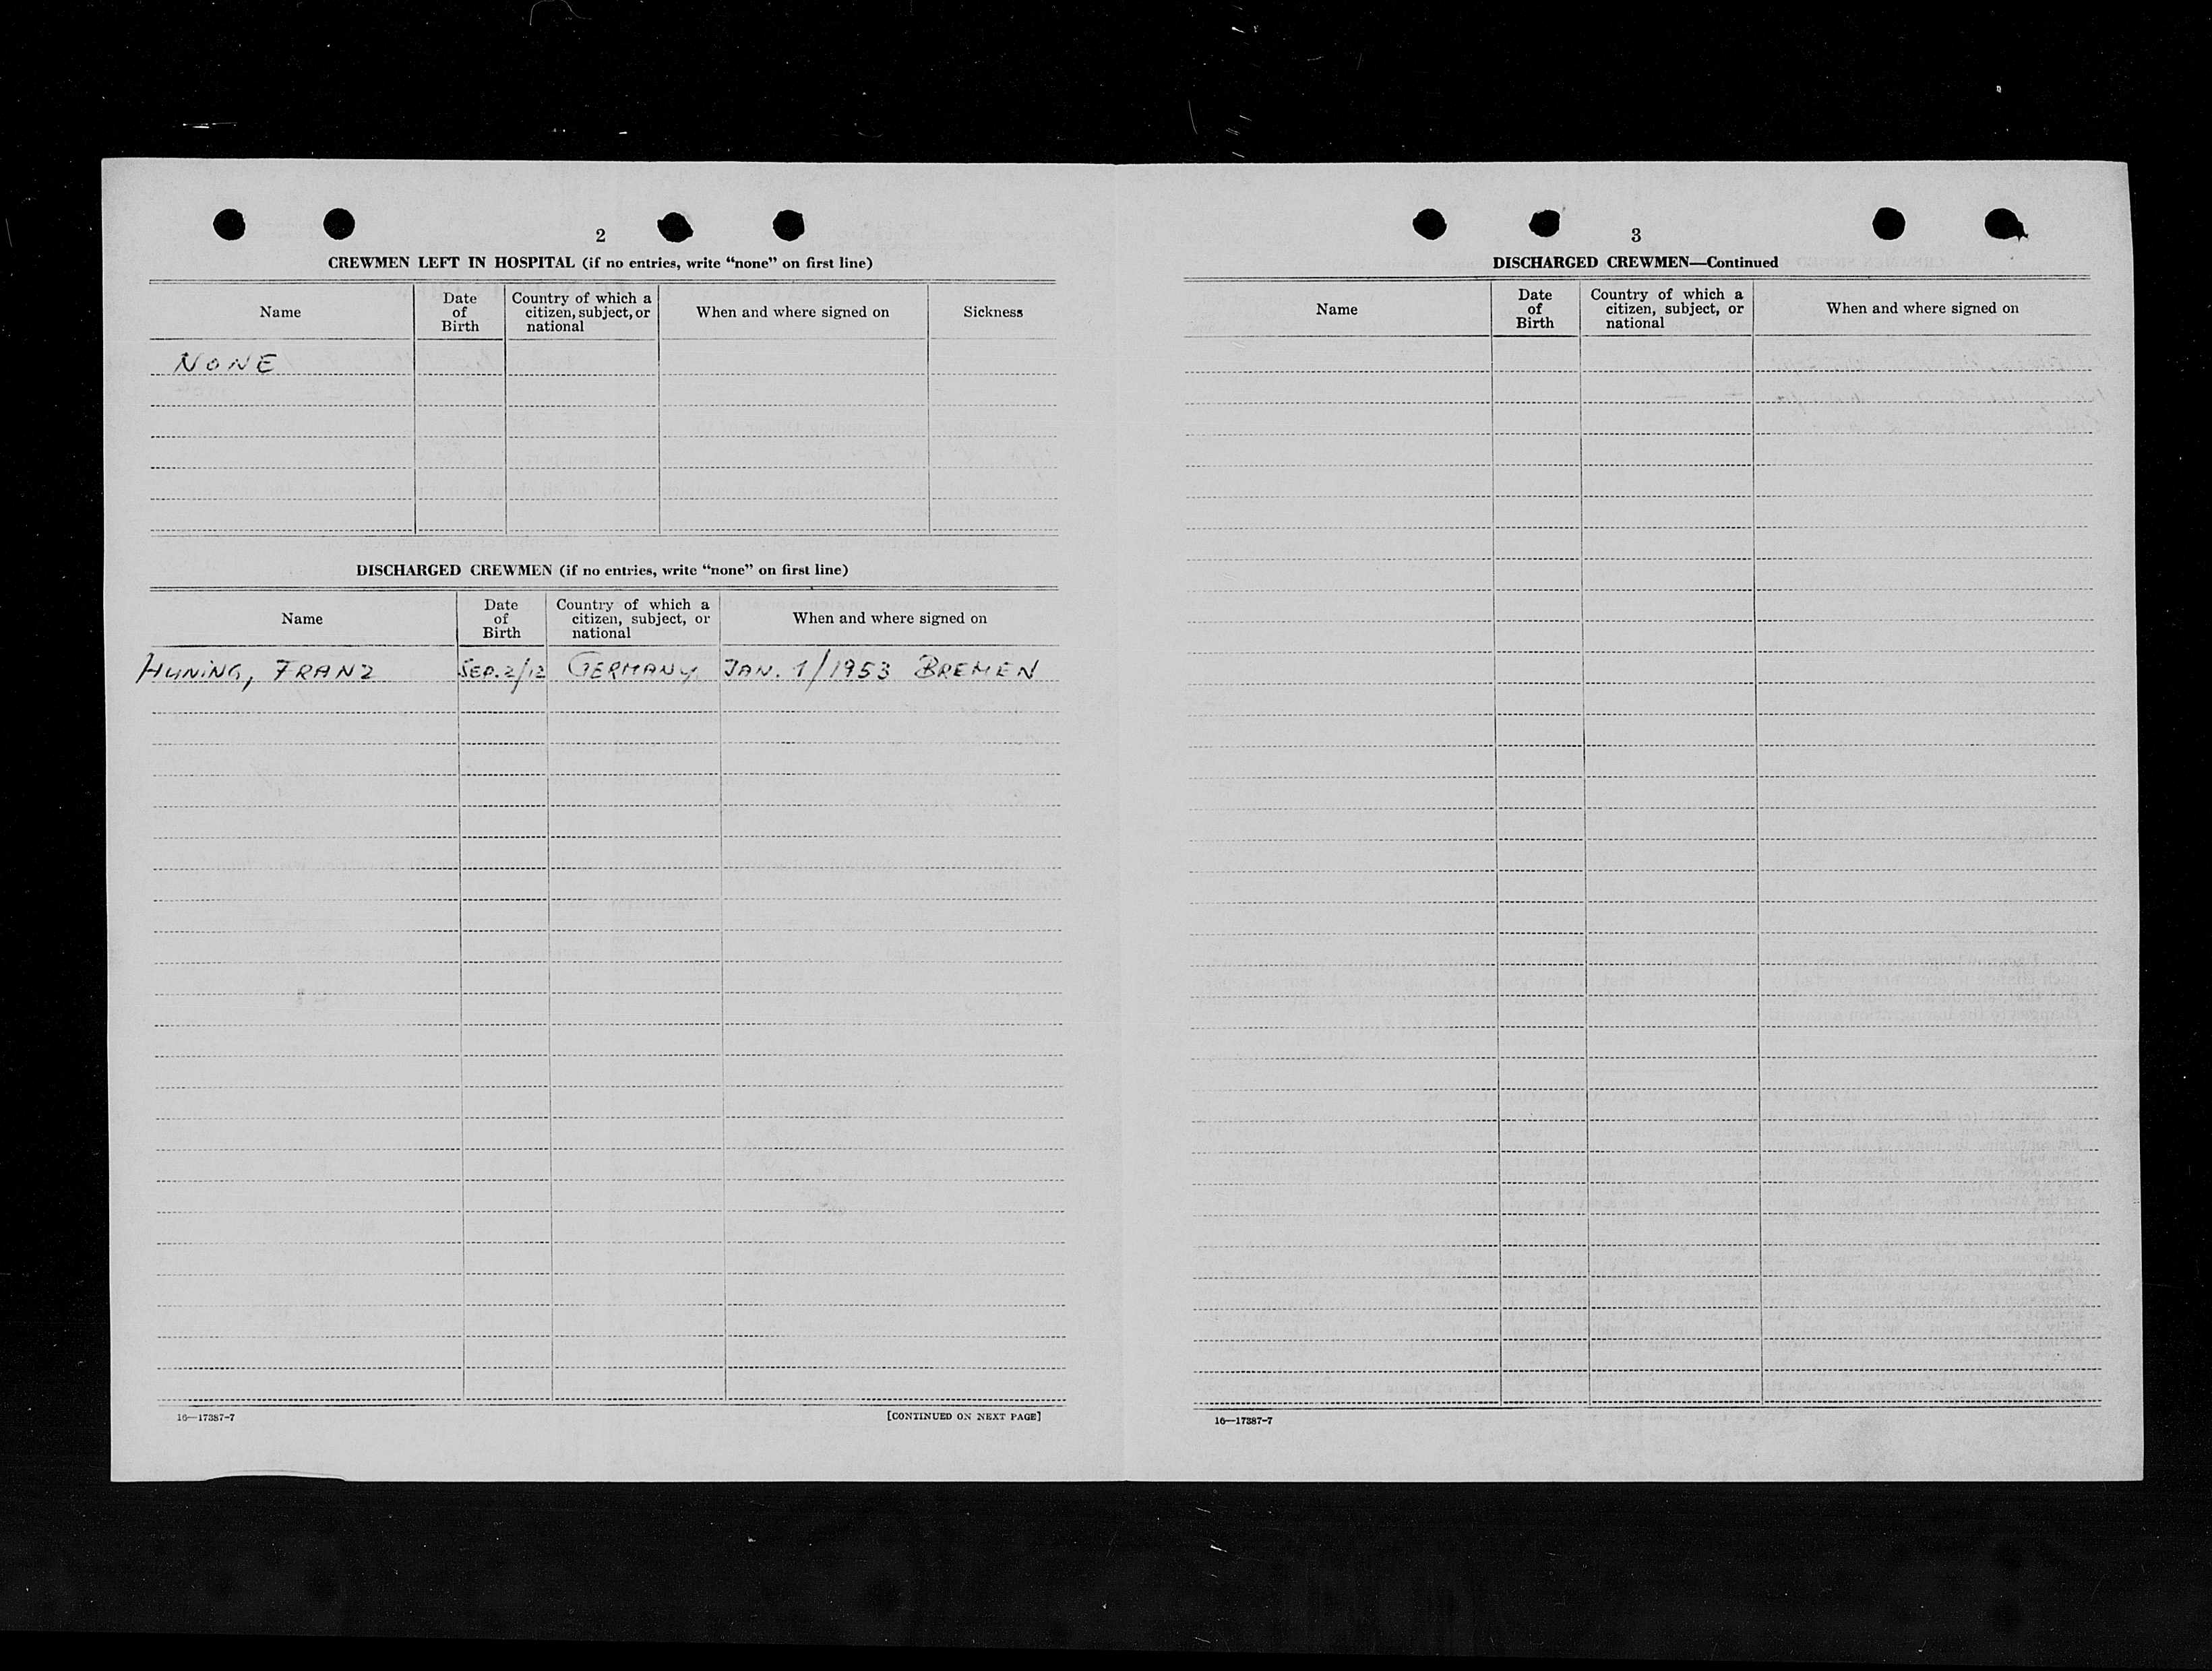 2
CREWMEN LEFT IN HOSPITAL (if no entries, write “none” on first line)
Name
Date of Birth
Country of which a citizen, subject, or national
When and where signed on
Sickness
NONE
DISCHARGED CREWMEN (if no entries, write “none” on first line)
Name
Date of Birth
Country of which a citizen, subject, or national
When and where signed on
HUNING, FRANZ SEP. 2/12 GERMANY JAN. 1/1953 BREMEN
16—17387-7 [CONTINUED ON NEXT PAGE]
3
DISCHARGED CREWMEN—Continued
Name
Date of Birth
Country of which a citizen, subject, or national
When and where signed on
16—17387-7